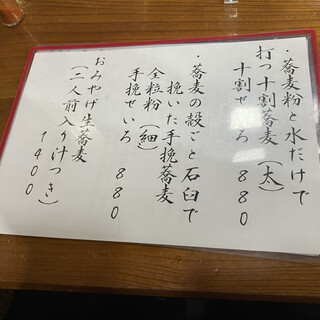 ・蕎麦粉と水だけで
打つ十割蕎麦(太)
十割せいろ 880
・蕎麦の殻ごと石臼で
挽いた手挽蕎麦
全粒粉(細)
手挽せいろ 880
おみやげ生蕎麦
(二人前入り汁つき)
1400